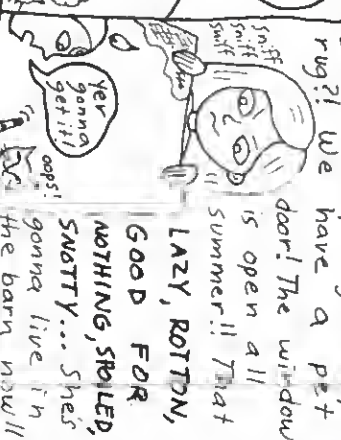 rug?! We have a pet
door! The window
is open all
summer!! That
LAZY, ROTTON,
GOOD FOR
NOTHING, SPOILED,
SNOTTY... She's
gonna live in
the barn now!!
sniff
sniff
sniff
yer
gonna
get it!
oops!